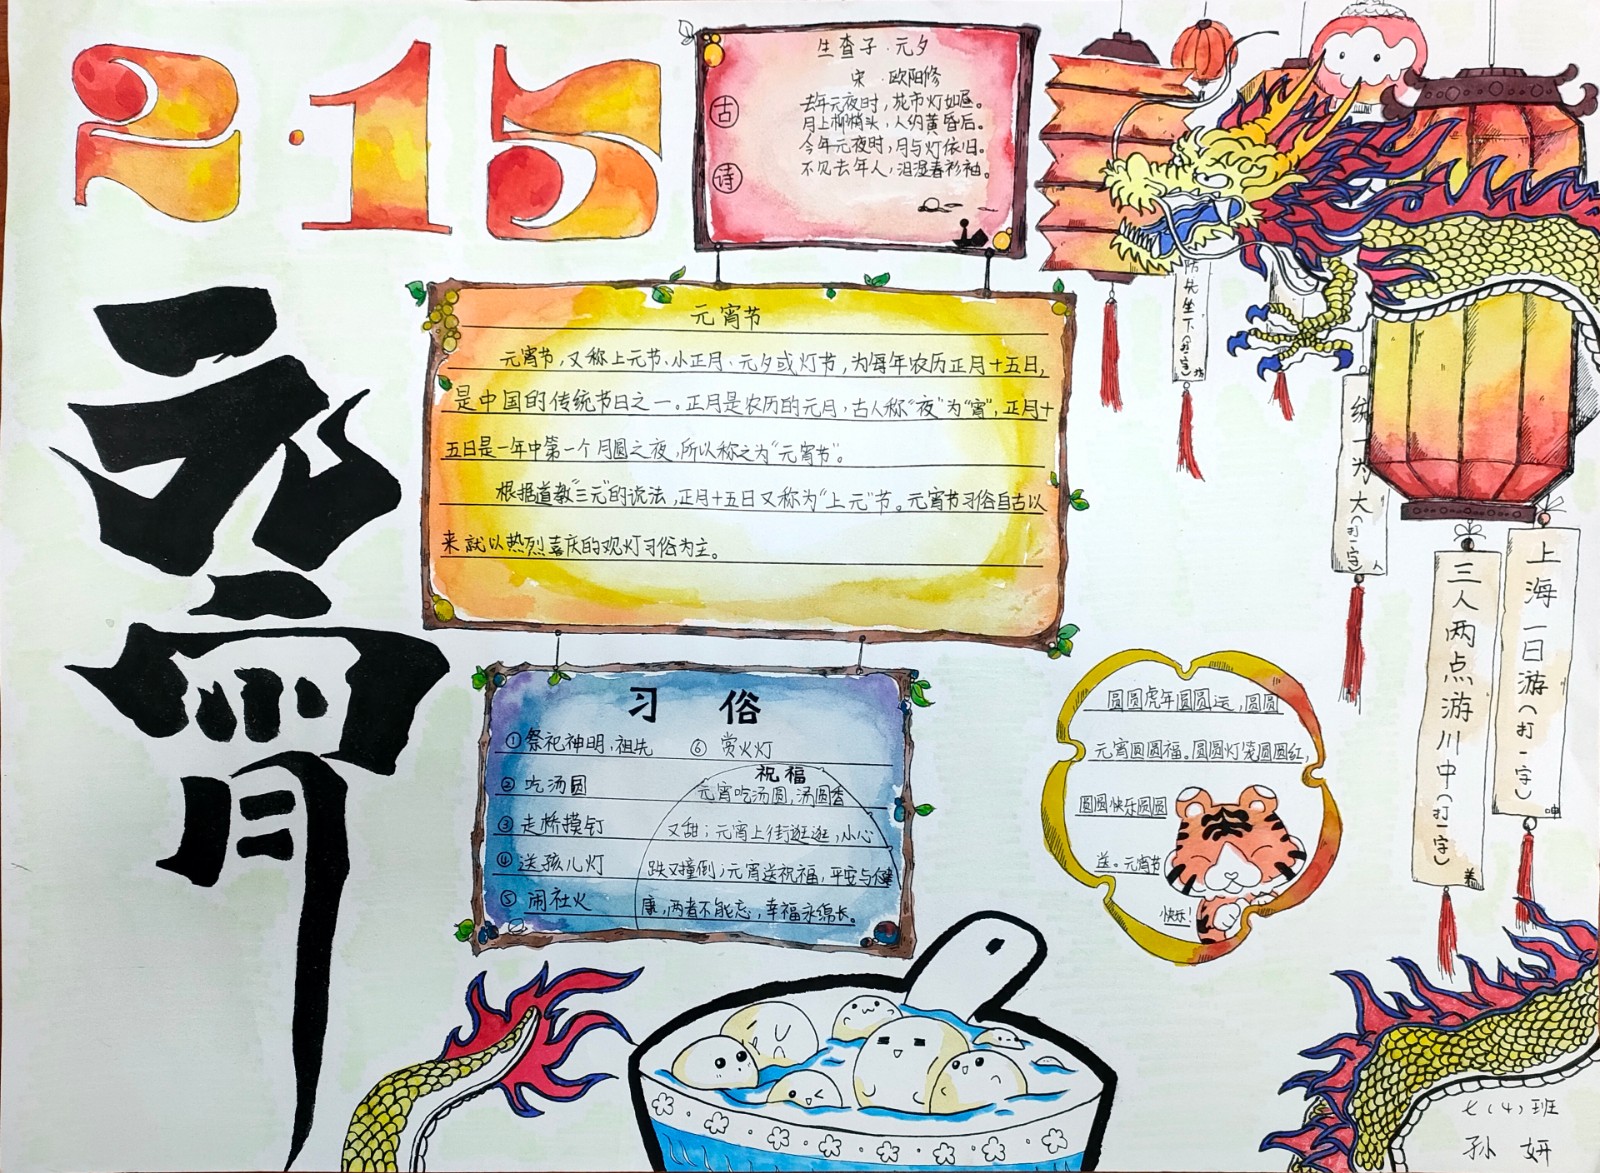 2·15
元宵
生查子·元夕
宋·欧阳修
古诗
去年元夜时,花市灯如昼。
月上柳梢头,人约黄昏后。
今年元夜时,月与灯依旧。
不见去年人,泪湿春衫袖。
元宵节
元宵节,又称上元节、小正月、元夕或灯节,为每年农历正月十五日,
是中国的传统节日之一。正月是农历的元月,古人称“夜”为“宵”,正月十
五日是一年中第一个月圆之夜,所以称之为“元宵节”。
根据道教“三元”的说法,正月十五日又称为“上元”节。元宵节习俗自古以
来就以热烈喜庆的观灯习俗为主。
习俗
①祭祀神明,祖先
②吃汤圆
③走桥摸钉
④送孩儿灯
⑤闹社火
⑥赏火灯
祝福
元宵吃汤圆,汤圆香
又甜;元宵上街逛逛,小心
跌又撞倒;元宵送祝福,平安与健
康,两者不能忘,幸福永绵长。
圆圆虎年圆圆运,圆圆
元宵圆圆福。圆圆灯笼圆圆红,
圆圆快乐圆圆
送。元宵节
快乐!
防先生下(打一字)坊
统一为大(打一字)人
三人两点游川中(打一字)
上海一日游(打一字)
七(4)班
孙妍